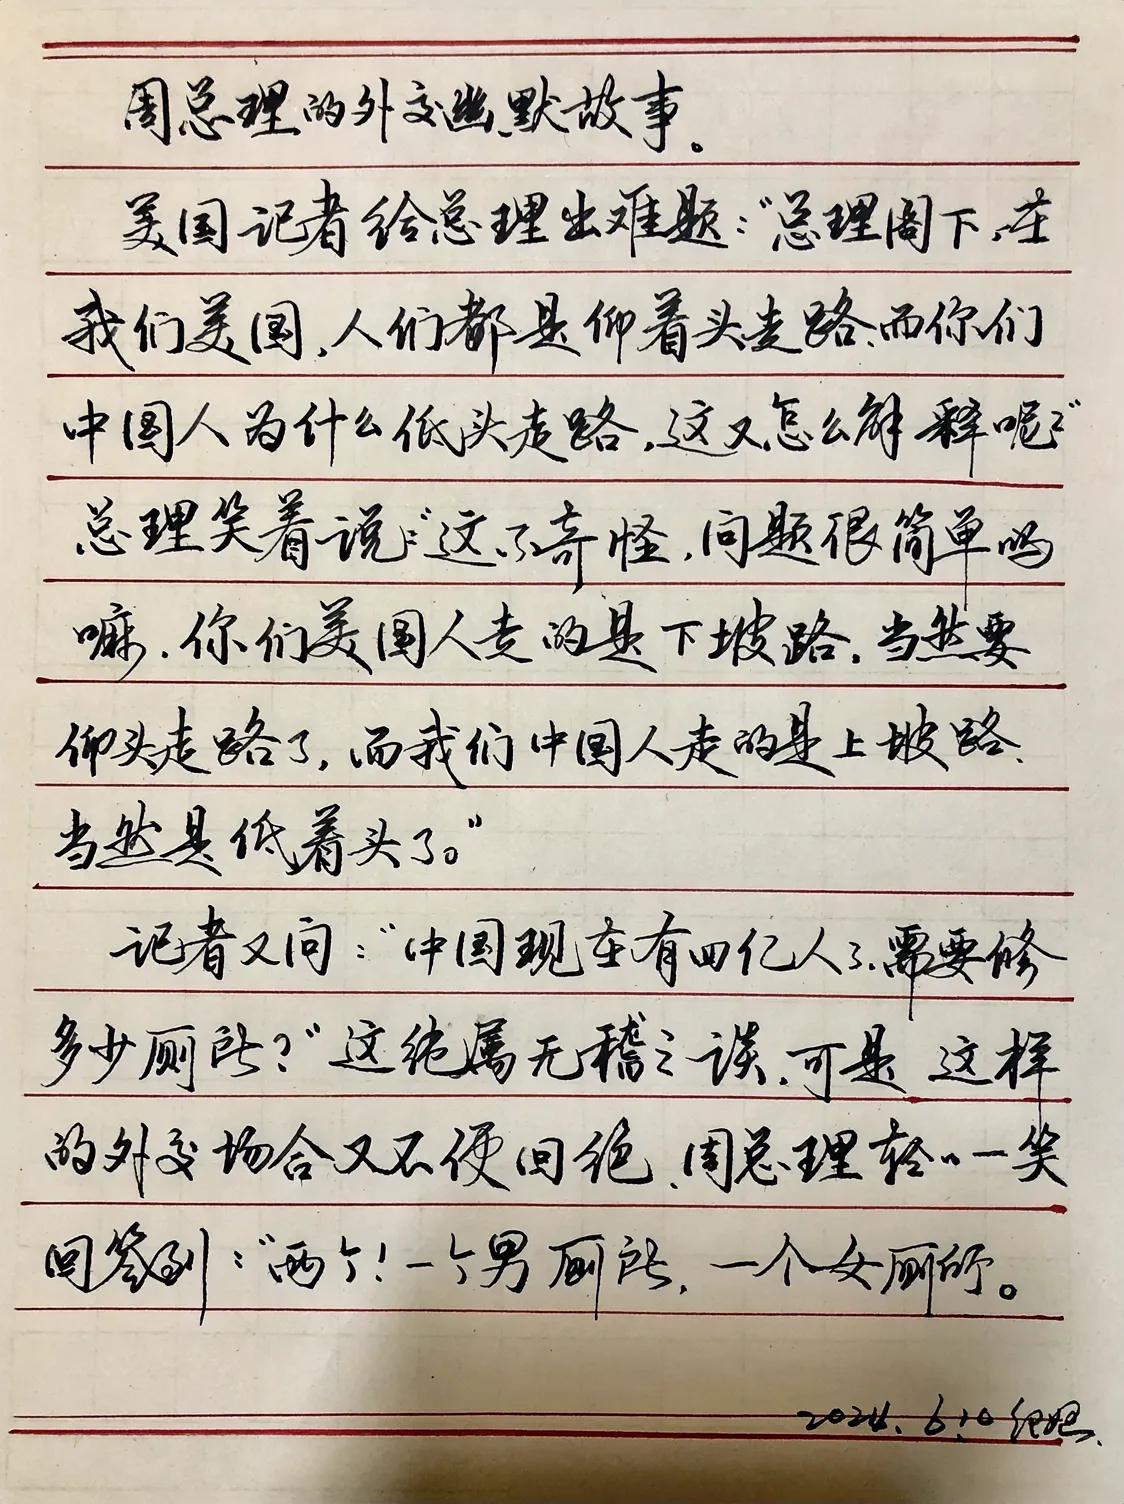 周总理的外交幽默故事。
美国记者给总理出难题:“总理阁下,在
我们美国,人们都是仰着头走路,而你们
中国人为什么低头走路,这又怎么解释呢?”
总理笑着说:“这不奇怪,问题很简单吗
嘛,你们美国人走的是下坡路,当然要
仰头走路了,而我们中国人走的是上坡路,
当然是低着头了。”
记者又问:“中国现在有四亿人了,需要修
多少厕所?”这绝属无稽之谈,可是 这样
的外交场合又不便回绝,周总理轻轻一笑
回答到:“两个!一个男厕所,一个女厕所。
2024.6.10